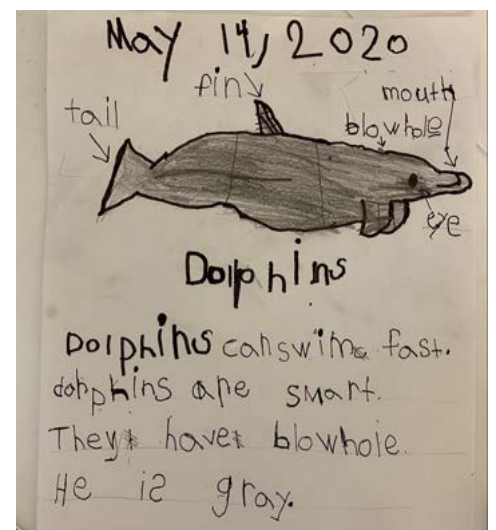 May 14, 2020
fin
mouth
tail
blowhole
eye
Dolphins
Dolphins can swim fast.
dohphins are smart.
They have blowhole.
He is gray.